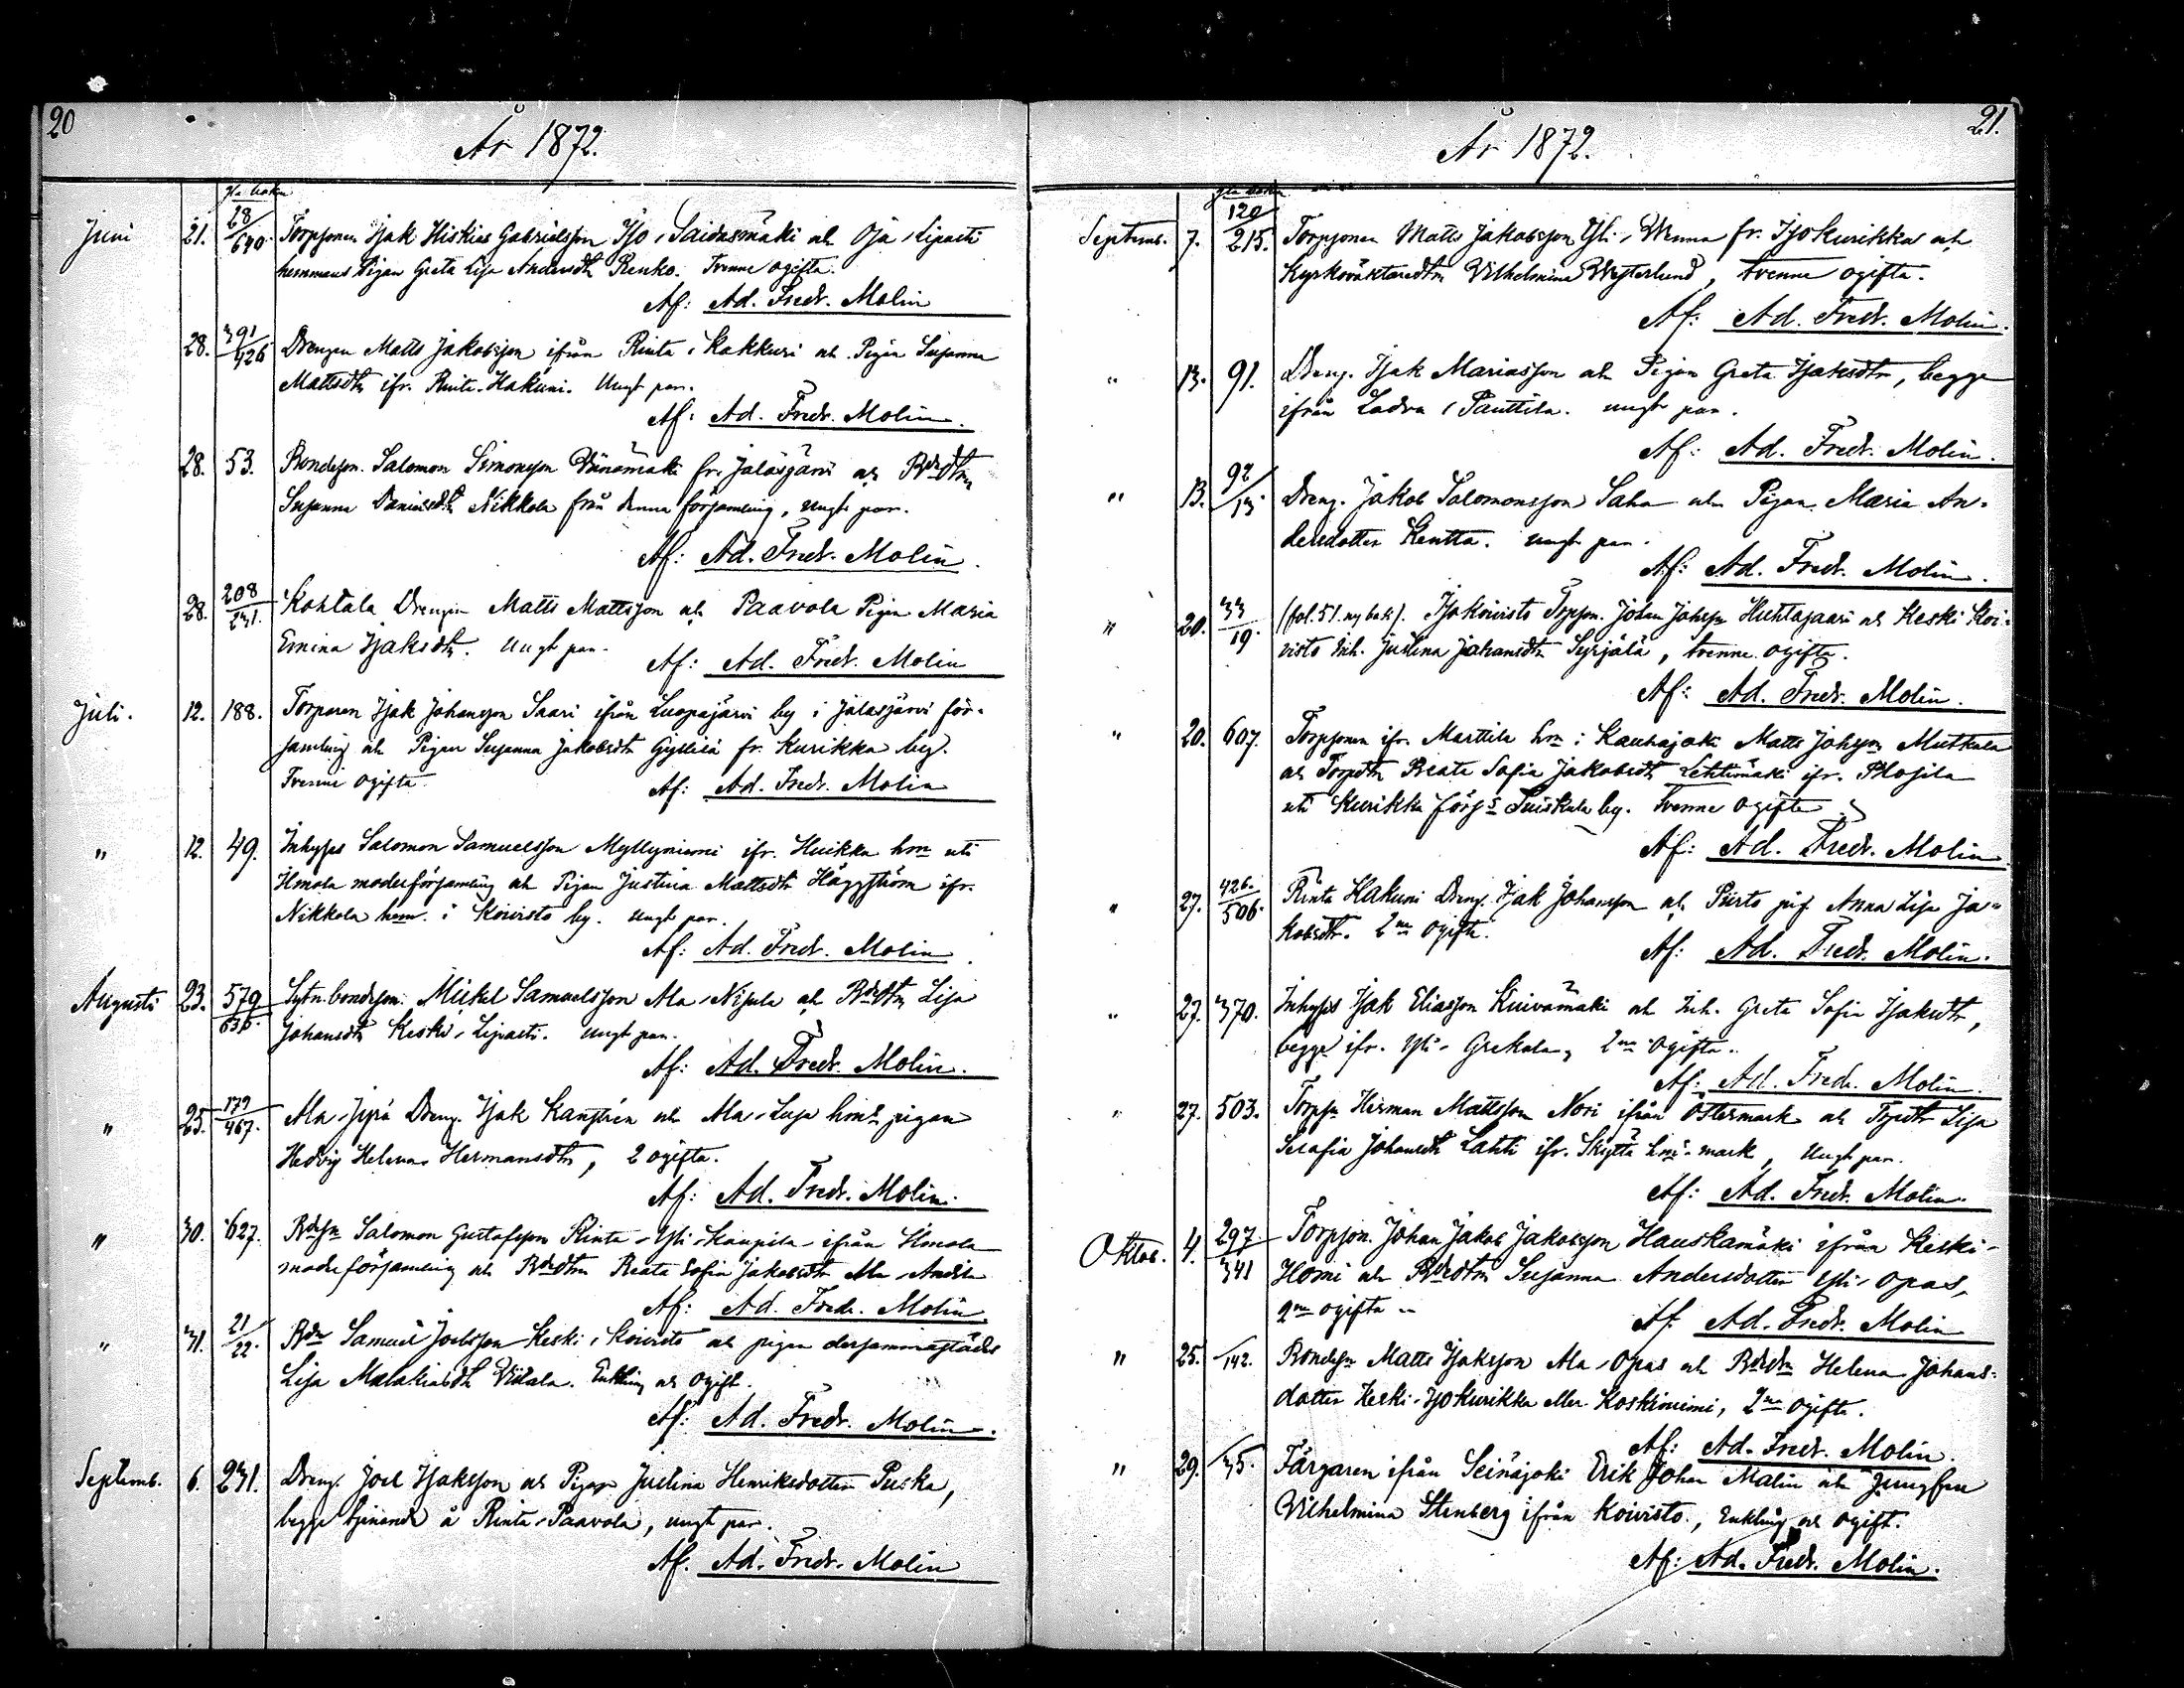 20
År 1872.
Juni 21. 28/640. Torpsonen Isak Hiskias Gabrielsson Iso Saidasmäki och Oja Lipasti
hemmans Pigan Greta Lisa Andersdtr Renko. Tvenne ogifta.
Af: Ad. Fredr. Molin
28. 391/426 Drengen Matts Jakobsson ifrån Rinta Kakkuri och Pigan Susanna
Mattsdtr ifr. Rinta-Hakuni. Ungt par.
Af: Ad. Fredr. Molin.
28. 53. Bondeson. Salomon Simonsson Wänämäki fr. Jalasjärvi och Bdedtrn
Susanna Danielsdtr Nikkola från denna församling, ungt par.
Af: Ad. Fredr. Molin.
28. 208/231. Kohtala Drengen Matts Mattsson och Paavola Pigan Maria
Emina Isaksdtr. Ungt par.
Af: Ad. Fredr. Molin
Juli. 12. 188. Torparen Isak Johansson Saari ifrån Luopajärvi by i Jalasjärvi för-
samling och Pigan Susanna Jakobsdtr Gyllisä fr. Kurikka by.
Tvenne ogifta.
Af: Ad. Fredr. Molin
" 12. 49. Inhyses Salomon Samuelsson Myllyniemi ifr. Huikka hmn uti
Ilmola moderförsamling och Pigan Justina Mattsdtr Häggström ifr.
Nikkola hem. i Koivisto by. Ungt par.
Af: Ad. Fredr. Molin.
Augusti 23. 579/636. Sytn. bondeson. Mickel Samuelsson Ala-Nisula och Bdedtrn Lisa
Johansdtr Keski-Lipasti. Ungt par.
Af: Ad. Fredr. Molin.
" 25. 179/467. Ala-Jyrä Dreng. Isak Kanstrén och Ala-Luja hmns pigan
Hedvig Helena Hermansdtr, 2 ogifta.
Af: Ad. Fredr. Molin.
" 30. 627. Bdesn Salomon Gustafsson Rinta-Yli-Kaupila ifrån Ilmola
moderförsamling och Bdedtrn Beata Sofia Jakobsdtr Ala-Andila
Af: Ad. Fredr. Molin.
" 31. 21/22. Bdn Samuel Joelsson Keski-Koivisto och pigan dersammastädes
Lisa Malakiasdtr Viitala. Enkling och ogift.
Af: Ad. Fredr. Molin.
Septemb. 6. 231. Dreng. Joel Isaksson och Pigan Justina Henriksdotter Puska,
begge tjenande å Rinta-Paavola, ungt par.
Af. Ad. Fredr. Molin
21.
År 1872.
Septemb. 7. 120/215. Torpsonen Matts Jakobsson Yli-Wenna fr. Isokurikka och
Kyrkoväktaredtrn Vilhelmina Westerlund, tvenne ogifta.
Af: Ad. Fredr. Molin.
" 13. 91. Dreng. Isak Mariasson och Pigan Greta Isaksdtr, begge
ifrån Ladva Panttila. ungt par.
Af: Ad. Fredr. Molin.
" 13. 92/13. Dreng. Jakob Salomonsson Saha och Pigan Maria An-
dersdotter Kentta. ungt par.
Af: Ad. Fredr. Molin.
" 20. 33/19. (fol. 51. ny bok). Isokoivisto Torpson. Johan Johsson Huhtasaari och Keski-Koi-
visto Inh. Justina Johansdtr Syrjälä, tvenne ogifta.
Af: Ad. Fredr. Molin.
" 20. 607. Torpsonen ifr. Marttila hmn i Kauhajoki Matts Johsson Mutkala
och Torpdtrn Beata Sofia Jakobsdtr Lehtimäki ifr. Plosila
uti Kurikka förs:s Tuiskula by. Tvenne ogifta.
Af: Ad. Fredr. Molin.
" 27. 426./506. Rinta Hakuni Dreng. Isak Johansson och Piirto pig. Anna Lisa Ja-
kobsdtr. 2ne ogifta.
Af: Ad. Fredr. Molin.
" 27. 370. Inhyses Isak Eliasson Kuivamäki och Inh. Greta Sofia Isaksdtr,
begge ifr. Yli-Grekola, 2ne ogifta.
Af: Ad. Fredr. Molin.
" 27. 503. Torpsn Herman Mattsson Nori ifrån Östermark och Tpdtr Lisa
Serafia Johansdtr Lahti ifr. Skyttä hms-mark, Ungt par.
Af: Ad. Fredr. Molin.
Oktob. 4. 297/341 Torpson. Johan Jakob Jakobsson Hauskamäki ifrån Keski-
Homi och Bdedtrn Susanna Andersdotter Yli-Opas,
2ne ogifta
Af. Ad. Fredr. Molin
" 25. /142. Bondesn Matts Isaksson Ala-Opas och Bdedtrn Helena Johans-
dotter Keski-Isokurikka eller Koskiniemi, 2ne ogifta.
Af: Ad. Fredr. Molin.
" 29. /35. Färgaren ifrån Seinäjoki Erik Johan Malin och Jungfru
Vilhelmina Stenberg ifrån Koivisto., Enkling och ogift.
Af: Ad. Fredr. Molin.